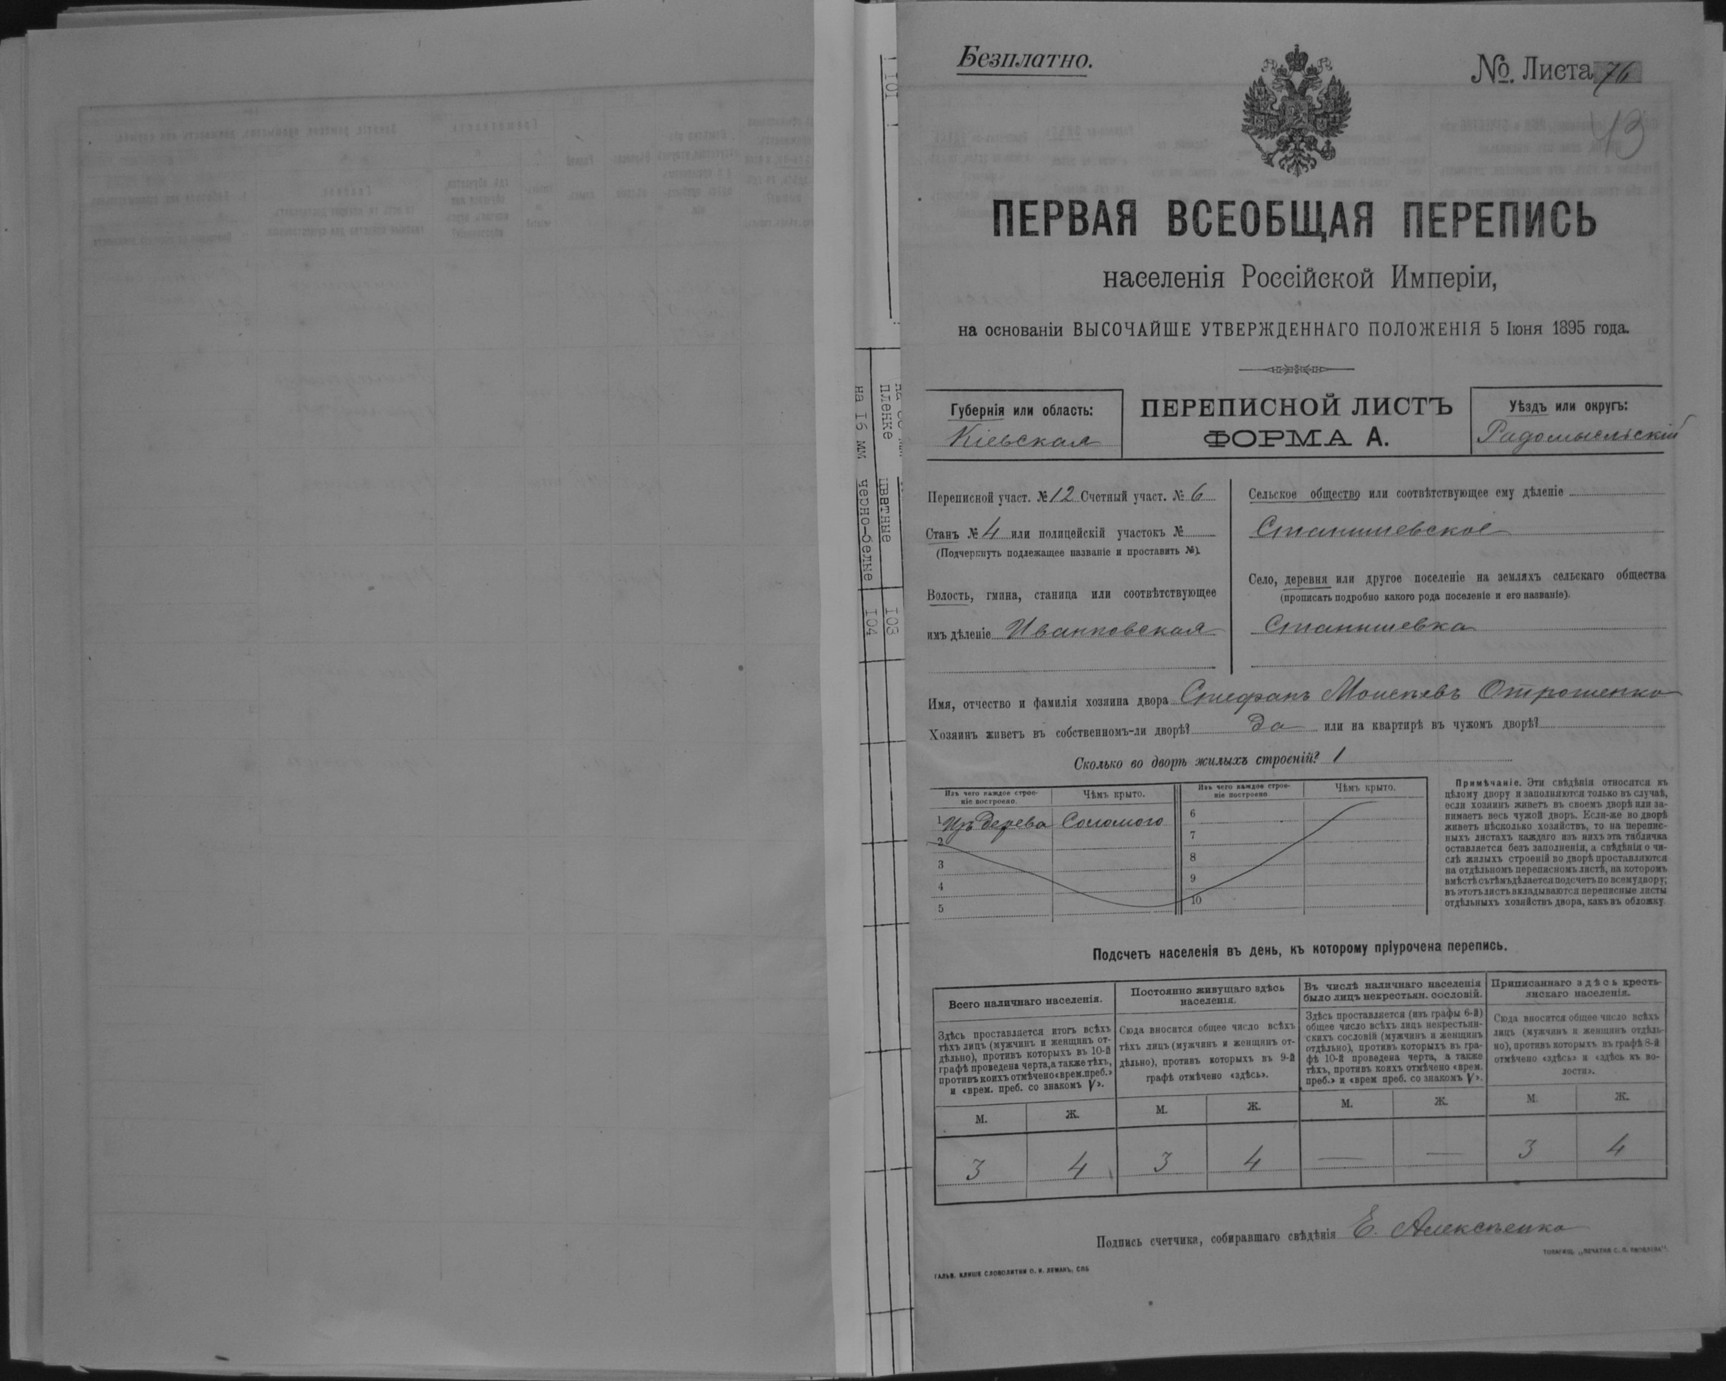 Безплатно.
№. Листа 76
13
ПЕРВАЯ ВСЕОБЩАЯ ПЕРЕПИСЬ
населенія Россійской Имперіи,
на основаніи ВЫСОЧАЙШЕ УТВЕРЖДЕННАГО ПОЛОЖЕНІЯ 5 Іюня 1895 года.
Губернія или область:
Кіевская
ПЕРЕПИСНОЙ ЛИСТЪ
ФОРМА А.
Уѣздъ или округъ:
Радомысльскій
Переписной участ. № 12 Счетный участ. № 6
Станъ № 4 или полицейскій участокъ №
(Подчеркнуть подлежащее названіе и проставить №).
Волость, гмина, станица или соотвѣтствующее
имъ дѣленіе Иванковская
Сельское общество или соотвѣтствующее ему дѣленіе
Станишевское
Село, деревня или другое поселеніе на земляхъ сельскаго общества
(прописать подробно какого рода поселеніе и его названіе).
Станишевка
Имя, отчество и фамилія хозяина двора Стефанъ Моисѣевъ Отрошенко
Хозяинъ живетъ въ собственномъ-ли дворѣ? да или на квартирѣ въ чужомъ дворѣ?
Сколько во дворѣ жилыхъ строеній? 1
Изъ чего каждое строе-
ніе построено.
Чѣмъ крыто.
Изъ чего каждое строе-
ніе построено.
Чѣмъ крыто.
1 Изъ дерева Соломою
2
3
4
5
6
7
8
9
10
Примѣчаніе. Эти свѣдѣнія относятся къ
цѣлому двору и заполняются только въ случаѣ,
если хозяинъ живетъ въ своемъ дворѣ или за-
нимаетъ весь чужой дворъ. Если-же во дворѣ
живетъ нѣсколько хозяйствъ, то на перепис-
ныхъ листахъ каждаго изъ нихъ эта табличка
оставляется безъ заполненія, а свѣдѣнія о чи-
слѣ жилыхъ строеній во дворѣ проставляются
на отдѣльномъ переписномъ листѣ, на которомъ
вмѣстѣ съ тѣмъ дѣлается подсчетъ по всему двору;
въ этотъ листъ вкладываются переписные листы
отдѣльныхъ хозяйствъ двора, какъ въ обложку.
Подсчетъ населенія въ день, къ которому пріурочена перепись.
Всего наличнаго населенія.
Постоянно живущаго здѣсь
населенія.
Въ числѣ наличнаго населенія
было лицъ некрестьян. сословій.
Приписаннаго здѣсь кресть-
янскаго населенія.
Здѣсь проставляется итогъ всѣхъ
тѣхъ лицъ (мужчинъ и женщинъ от-
дѣльно), противъ которыхъ въ 10-й
графѣ проведена черта, а также тѣхъ,
противъ коихъ отмѣчено «врем. преб.»
и «врем. преб. со знакомъ V».
Сюда вносится общее число всѣхъ
тѣхъ лицъ (мужчинъ и женщинъ от-
дѣльно), противъ которыхъ въ 9-й
графѣ отмѣчено «здѣсь».
Здѣсь проставляется (изъ графы 6-й)
общее число всѣхъ лицъ некрестьян-
скихъ сословій (мужчинъ и женщинъ
отдѣльно), противъ которыхъ въ гра-
фѣ 10-й проведена черта, а также
тѣхъ, противъ коихъ отмѣчено «врем.
преб.» и «врем преб. со знакомъ V».
Сюда вносится общее число всѣхъ
лицъ (мужчинъ и женщинъ отдѣль-
но), противъ которыхъ въ графѣ 8-й
отмѣчено «здѣсь» и «здѣсь въ во-
лости».
М. Ж. М. Ж. М. Ж. М. Ж.
3 4 3 4 — — 3 4
Подпись счетчика, собиравшаго свѣдѣнія Е. Алексѣенко
ГАЛЬВ. КЛИШЕ СЛОВОЛИТНИ О. И. ЛЕМАНЪ, СПБ
ТОВАРИЩ. „ПЕЧАТНЯ С. П. ЯКОВЛЕВА“.
101
пленке цветные 103
на 16 мм черно-белке 104